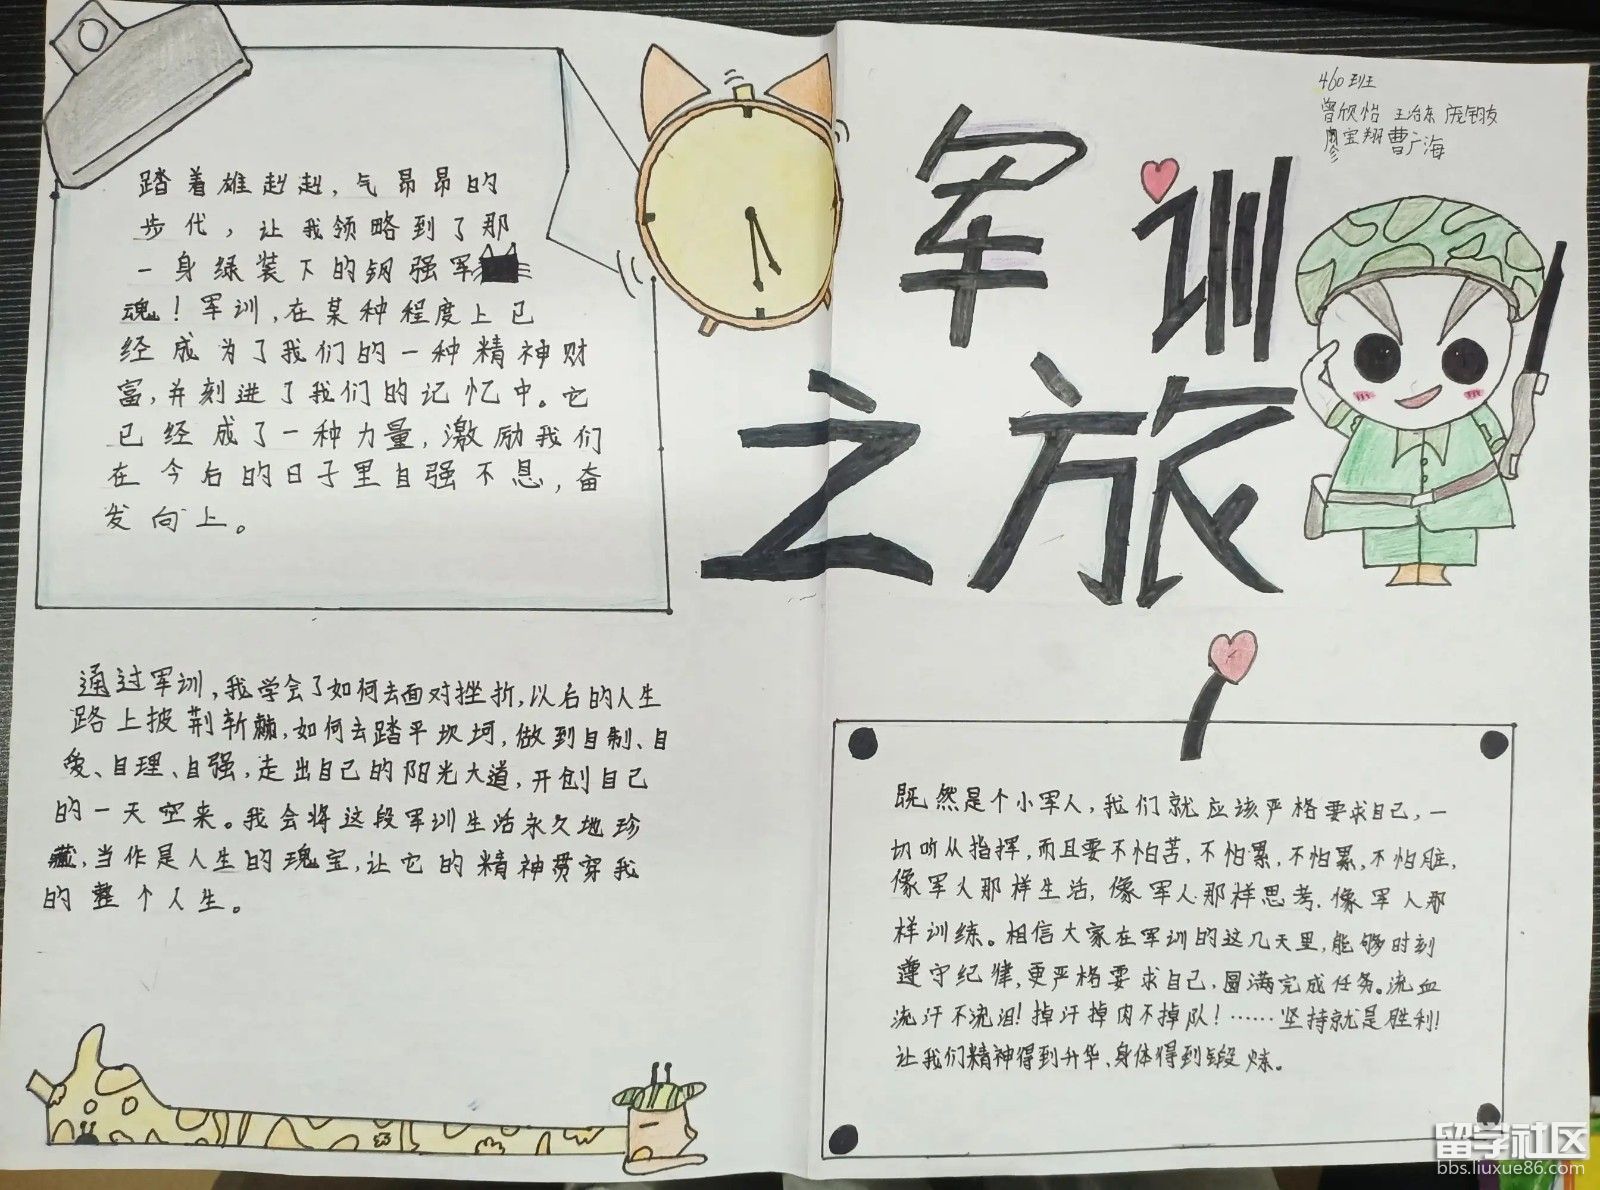 460班
曾欣怡 王冶东 庞钧友
廖宝翔 曹广海
军训
之旅
踏着雄赳赳，气昂昂的
步代，让我领略到了那
一身绿装下的钢强军
魂！军训，在某种程度上已
经成为了我们的一种精神财
富，并刻进了我们的记忆中。它
已经成了一种力量，激励我们
在今后的日子里自强不息，奋
发向上。
通过军训，我学会了如何去面对挫折，以后的人生
路上披荆斩棘，如何去踏平坎坷，做到自制、自
爱、自理、自强，走出自己的阳光大道，开创自己
的一天空来。我会将这段军训生活永久地珍
藏，当作是人生的瑰宝，让它的精神贯穿我
的整个人生。
既然是个小军人，我们就应该严格要求自己，一
切听从指挥，而且要不怕苦，不怕累，不怕累，不怕脏，
像军人那样生活，像军人那样思考，像军人那
样训练。相信大家在军训的这几天里，能够时刻
遵守纪律，更严格要求自己，圆满完成任务。流血
流汗不流泪！掉汗掉肉不掉队！……坚持就是胜利！
让我们精神得到升华、身体得到锻炼。
留学社区
bbs.liuxue86.com